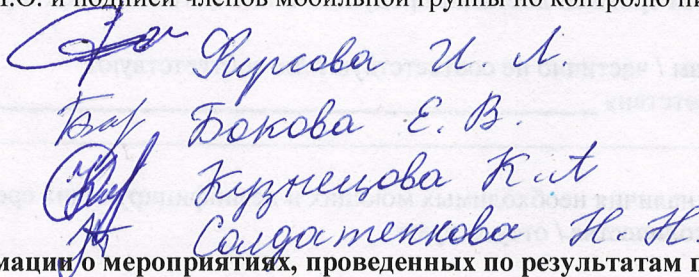 и подписи членов мобильной группы по контролю
Фирсова И. Л.
Бокова Е. В.
Кузнецова К. А
Солдатенкова Н Н
мации о мероприятиях, проведенных по результатам